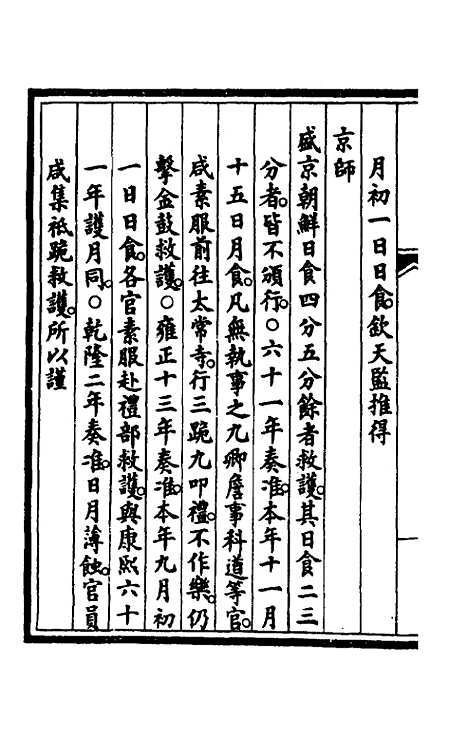 月初一日日食。欽天監推得
京師
盛京朝鮮日食四分五分餘者救護。其日食二三
分者。皆不頒行。○六十一年奏准。本年十一月
十五日月食。凡無執事之九卿詹事科道等官。
咸素服前往太常寺。行三跪九叩禮。不作樂。仍
擊金鼓救護。○雍正十三年奏准。本年九月初
一日日食。各官素服赴禮部救護。與康熙六十
一年護月同。○乾隆二年奏准。日月薄蝕。官員
咸集祗跪救護。所以謹